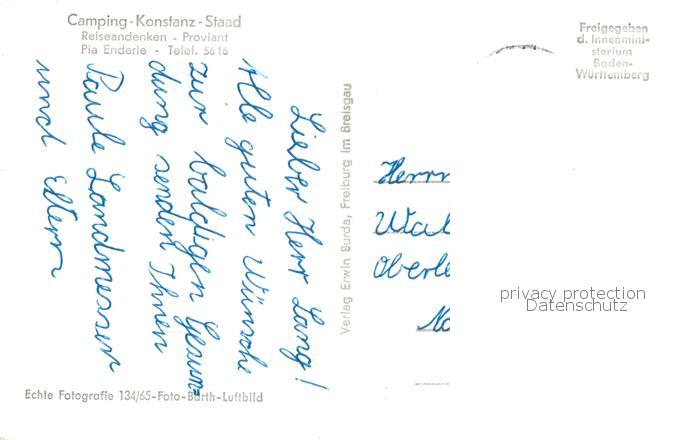 Camping-Konstanz-Staad
Reiseandenken - Proviant
Pia Enderle - Telef. 5616
Lieber Herr Lang!
Alle guten Wünsche
zur baldigen Gesun=
dung senden Ihnen
Paule Landmesser
und Eltern
Echte Fotografie 134/65-Foto-Barth-Luftbild
Verlag Erwin Burda, Freiburg im Breisgau
Freigegeben
d. Innenmini-
sterium
Baden-
Württemberg
Herrn
Wal
Oberle
privacy protection
Datenschutz